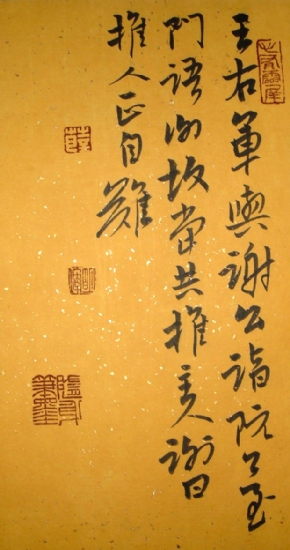 王右軍與謝公詣阮公至
門語謝故當共推主人謝曰
推人正自難